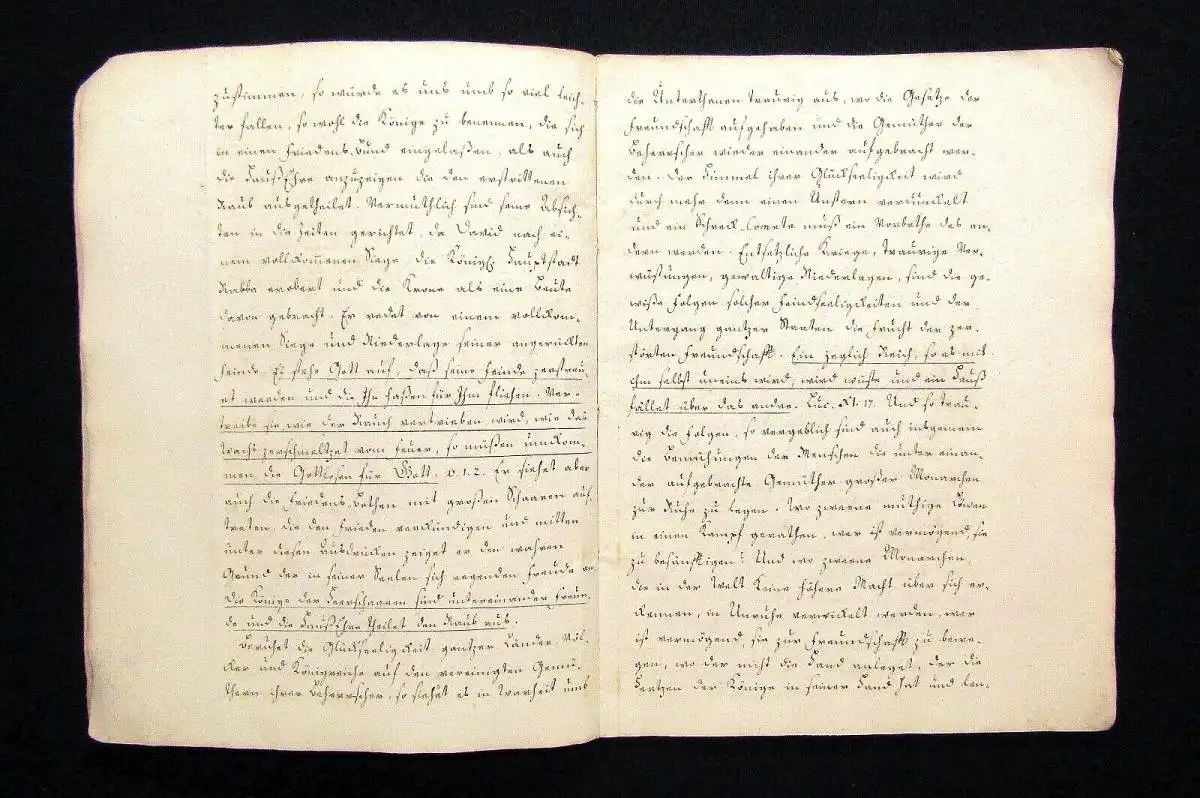 zustimmen, so würde es uns umb so viel leich-
ter fallen, so wohl die Könige zu benennen, die sich
in einen Friedens-Bund eingelaßen, als auch
die Hauß-Ehre anzuzeigen die den erstrittenen
Raub ausgetheilet. Vermuthlich sind seine Absich-
ten in die Zeiten gerichtet, da David nach ei-
nem vollkom̅enen Siege die Königl. Hauptstadt
Rabba erobert und die Krone als eine Beute
davon gebracht. Er redet von einem vollkom-
menen Siege und Niederlage seiner angerückten
Feinde Es stehe Gott auf, daß seine Feinde zerstreu-
et werden und die Ihn haßen für Ihm fliehen. Ver-
treibe sie, wie der Rauch vertrieben wird, wie das
Wachs zerschmeltzet vom Feuer, so müßen umkom-
men die Gottlosen für Gott. v. 1. 2. Er siehet aber
auch die Friedens-Bothen mit großen Schaaren auf-
treten, die den Frieden verkündigen und mitten
unter diesen Ausdrücken zeiget er den wahren
Grund der in seiner Seelen sich regenden Freude an
Die Könige der Heerschaaren sind untereinander Freun-
de und die Hauß-Ehre theilet den Raub aus.
Beruhet die Glückseeligkeit gantzer Länder, Völ-
ker und Königreiche auf den vereinigten Gemü-
thern ihrer Beherrscher, so siehet es in Warheit umb
die Unterthanen traurig aus, wo die Gesetze der
Freundschafft aufgehaben und die Gemüther der
Beherrscher wieder einander aufgebracht wer-
den. Der Himmel ihrer Glückseeligkeit wird
durch mehr denn einen Unstern verdunkelt
und ein Schreck-Comete muß ein Vorbothe des an-
dern werden. Entsetzliche Kriege, traurige Ver-
wüstungen, gewaltige Niederlagen, sind die ge-
wiße Folgen solcher Feindseeligkeiten und der
Untergang gantzer Staaten die Frucht der zer-
störten Freundschafft. Ein jeglich Reich, so es mit
ihm selbst uneins wird, wird wüste und ein Hauß
fället über das andre. Luc. XI. 17. Und so trau-
rig die Folgen, so vergeblich sind auch insgemein
die Bemühungen der Menschen die unter einan-
der aufgebrachte Gemüther großer Monarchen
zur Ruhe zu legen. Wo zweene muthige Löwen
in einen Kampf gerathen, wer ist vermögend, sie
zu besänfftigen? Und wo zweene Monarchen
die in der Welt keine höhere Macht über sich er-
kennen, in Unruhe verwickelt werden, wer
ist vermögend, sie zur Freundschafft zu bewe-
gen, wo der nicht die Hand anleget, der die
Hertzen der Könige in seiner Hand hat und len-